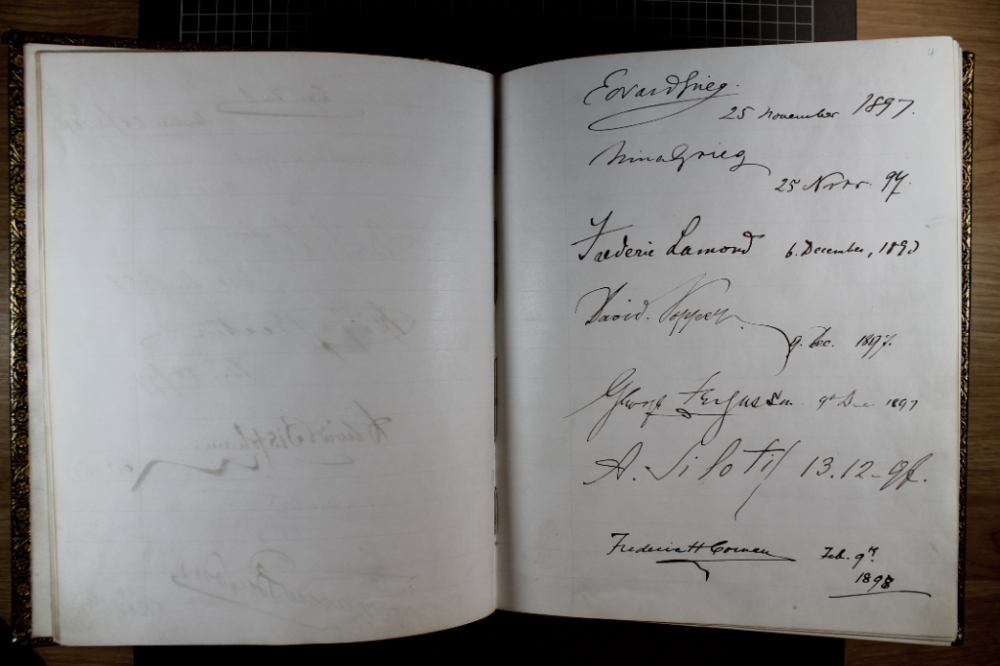 Edvard Grieg.
25 November 1897.
Nina Grieg
25 Novbr. 97.
Frederic Lamond 6. December, 1897
David. Popper
9. Dec. 1897.
George Fergusson. 9th Dec 1897
A. Siloti 13.12-97.
Frederic H Cowen Feb. 9th
1898
David Bispham